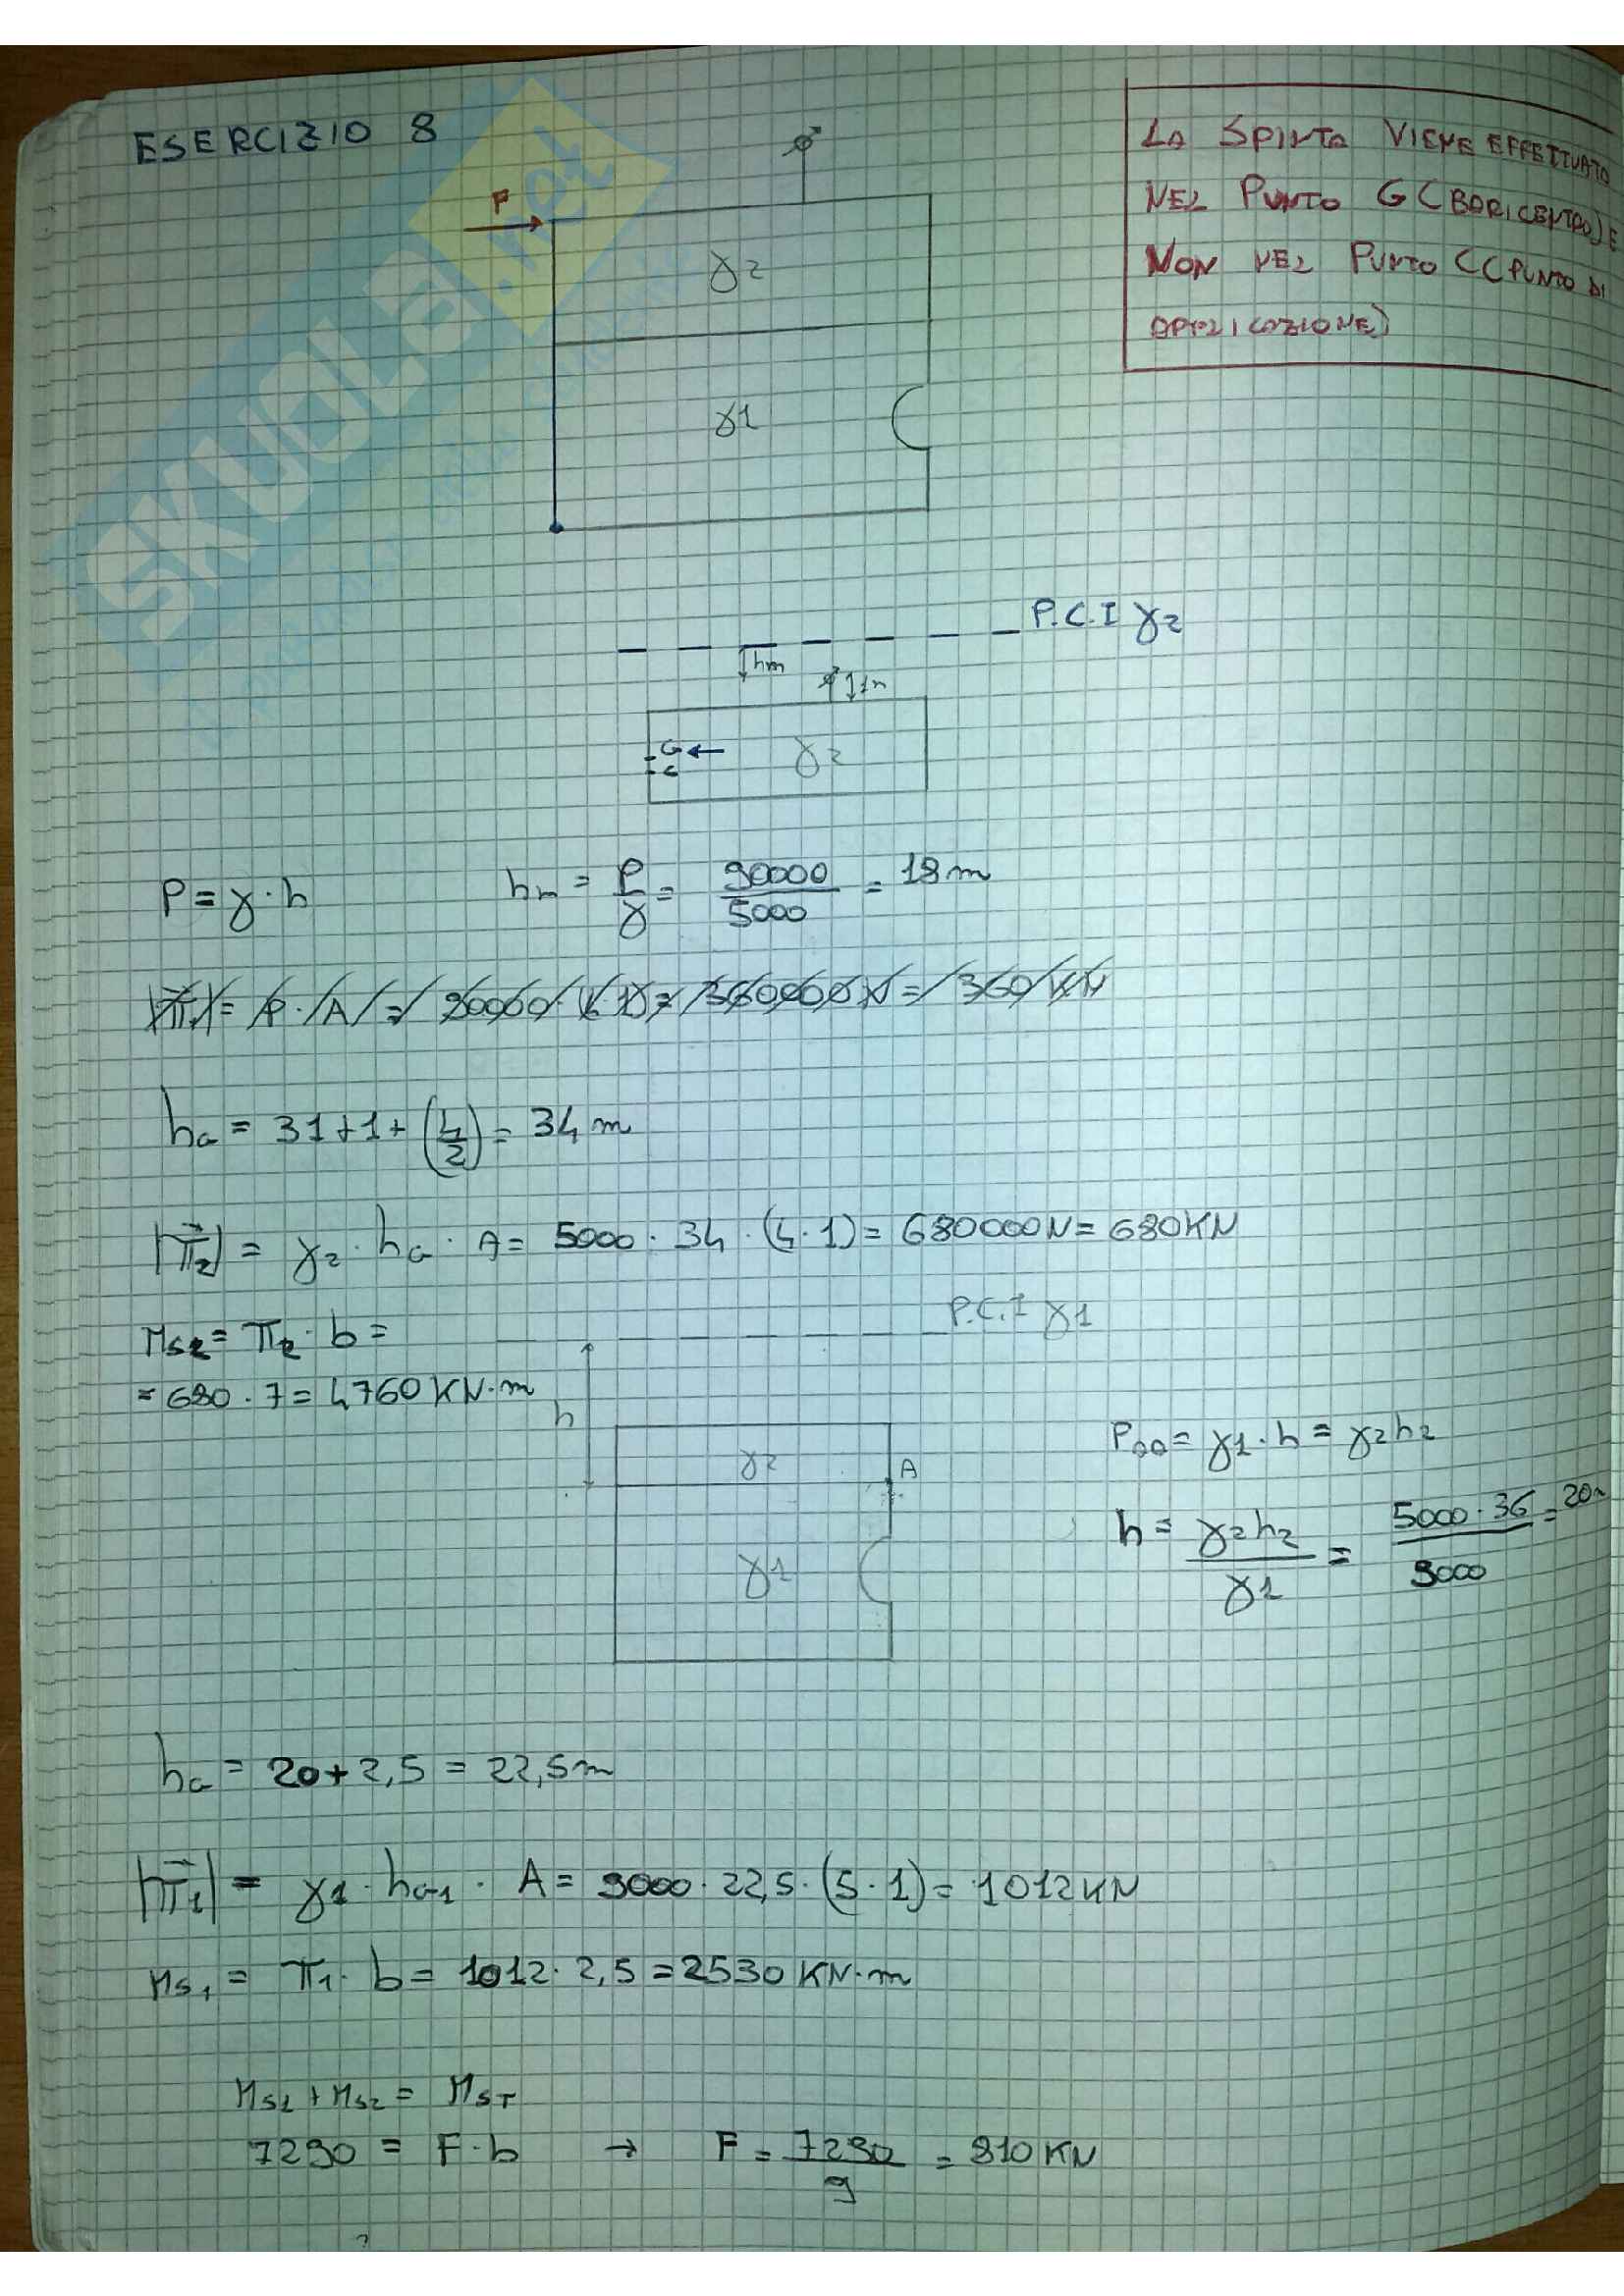 ESERCIZIO 8
LA SPINTA VIENE EFFETTUATA
NEL PUNTO G (BARICENTRO) E
NON NEL PUNTO C (PUNTO DI
APPLICAZIONE)
F
γ2
γ1
P.C.I γ2
hm
1m
G
C
γ2
P = γ · h
hm = P/γ = 90000/5000 = 18 m
hG = 31 + 1 + (4/2) = 34 m
|π⃗2| = γ2 · hG · A = 5000 · 34 · (4 · 1) = 680000 N = 680 KN
MS2 = π2 · b =
= 680 · 7 = 4760 KN·m
P.C.I γ1
h
γ2
A
γ1
PAA = γ1 · h = γ2h2
h = γ2h2/γ1 = 5000 · 36/9000 = 20m
hG = 20 + 2,5 = 22,5 m
|π⃗1| = γ1 · hG1 · A = 9000 · 22,5 · (5 · 1) = 1012 KN
MS1 = π1 · b = 1012 · 2,5 = 2530 KN·m
MS1 + MS2 = MST
7290 = F · b → F = 7290/9 = 810 KN
SKUOLA.net